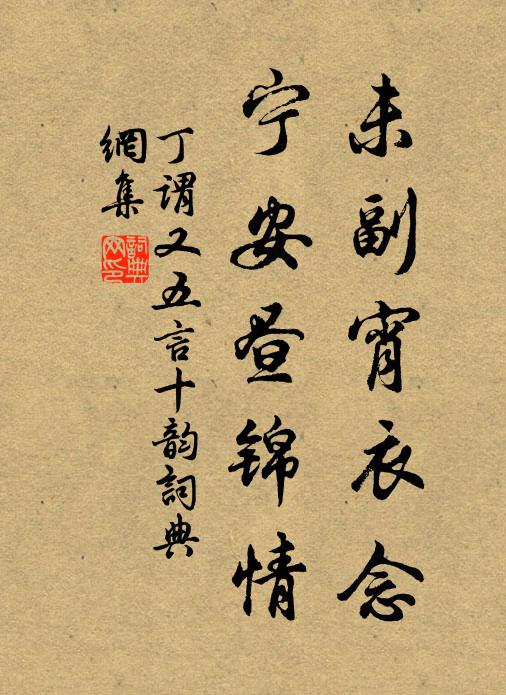 未副宵衣念
宁安昼锦情
丁谓又五言十韵詞典
網集
詞典網印